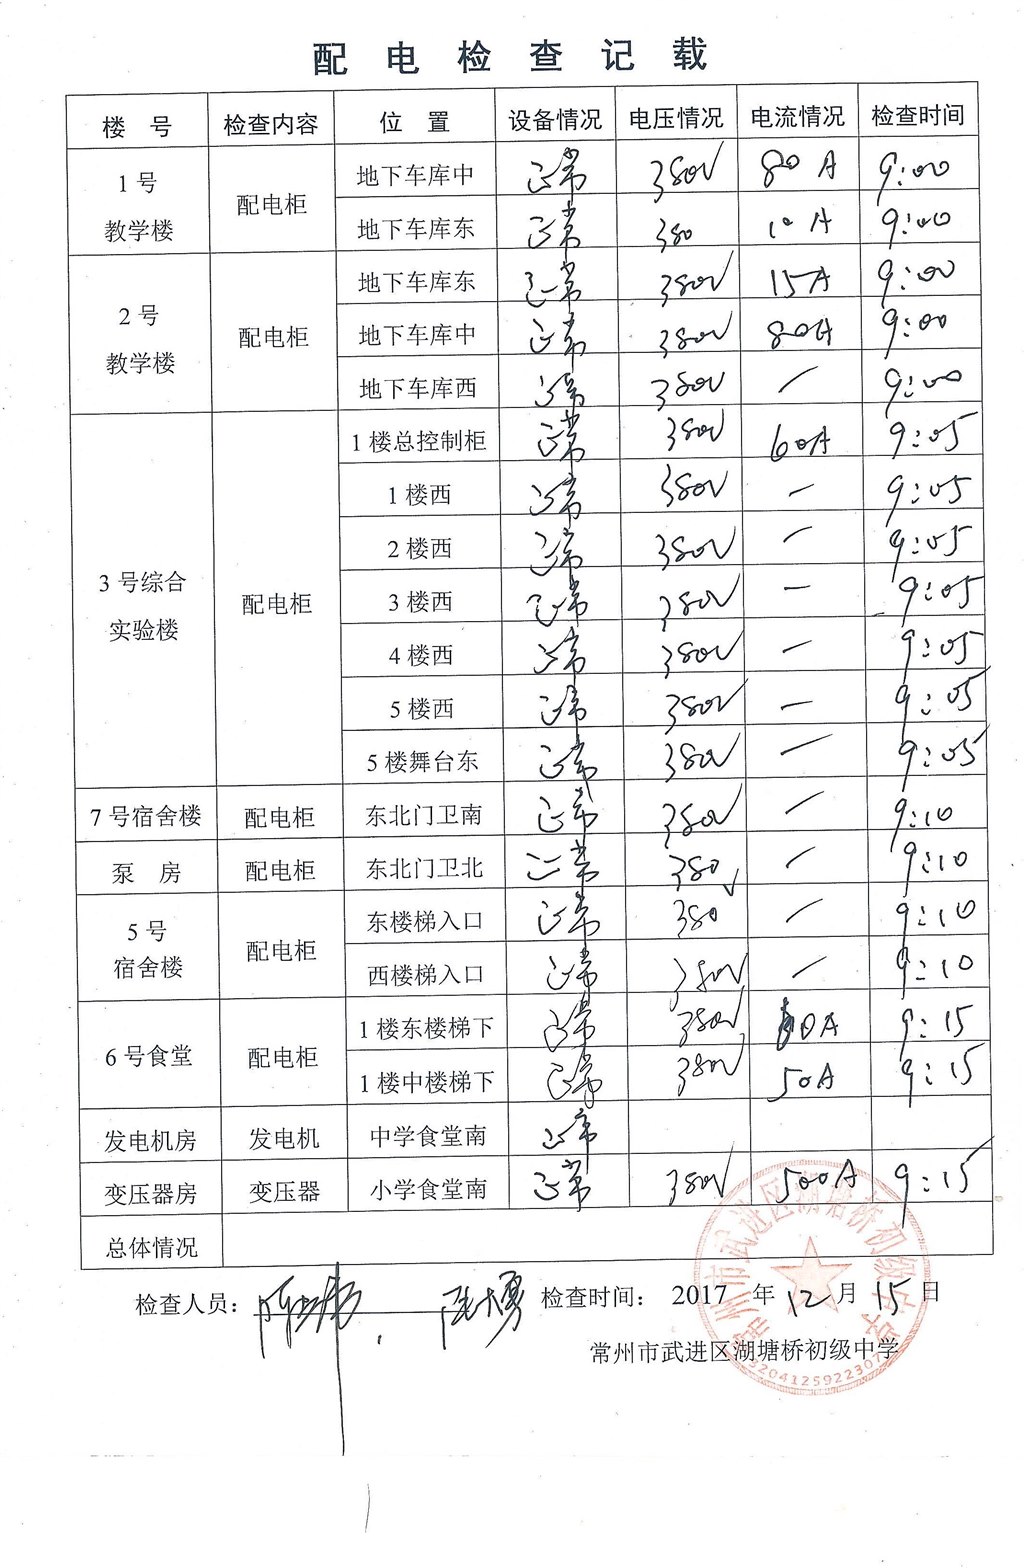 配电检查记载
楼号 检查内容 位置 设备情况 电压情况 电流情况 检查时间
1号教学楼 配电柜 地下车库中 正常 380V 80A 9:00
地下车库东 正常 380 10A 9:00
2号教学楼 配电柜 地下车库东 正常 380V 15A 9:00
地下车库中 正常 380V 80A 9:00
地下车库西 正常 380V / 9:00
3号综合实验楼 配电柜 1楼总控制柜 正常 380V 60A 9:05
1楼西 正常 380V / 9:05
2楼西 正常 380V / 9:05
3楼西 正常 380V / 9:05
4楼西 正常 380V / 9:05
5楼西 正常 380V / 9:05
5楼舞台东 正常 380V / 9:05
7号宿舍楼 配电柜 东北门卫南 正常 380V / 9:10
泵房 配电柜 东北门卫北 正常 380V / 9:10
5号宿舍楼 配电柜 东楼梯入口 正常 380 / 9:10
西楼梯入口 正常 380V / 9:10
6号食堂 配电柜 1楼东楼梯下 正常 380V 0A 9:15
1楼中楼梯下 正常 380V 50A 9:15
发电机房 发电机 中学食堂南 正常
变压器房 变压器 小学食堂南 正常 380V 500A 9:15
总体情况
检查人员: 检查时间: 2017年12月15日
常州市武进区湖塘桥初级中学
常州市武进区湖塘桥初级中学